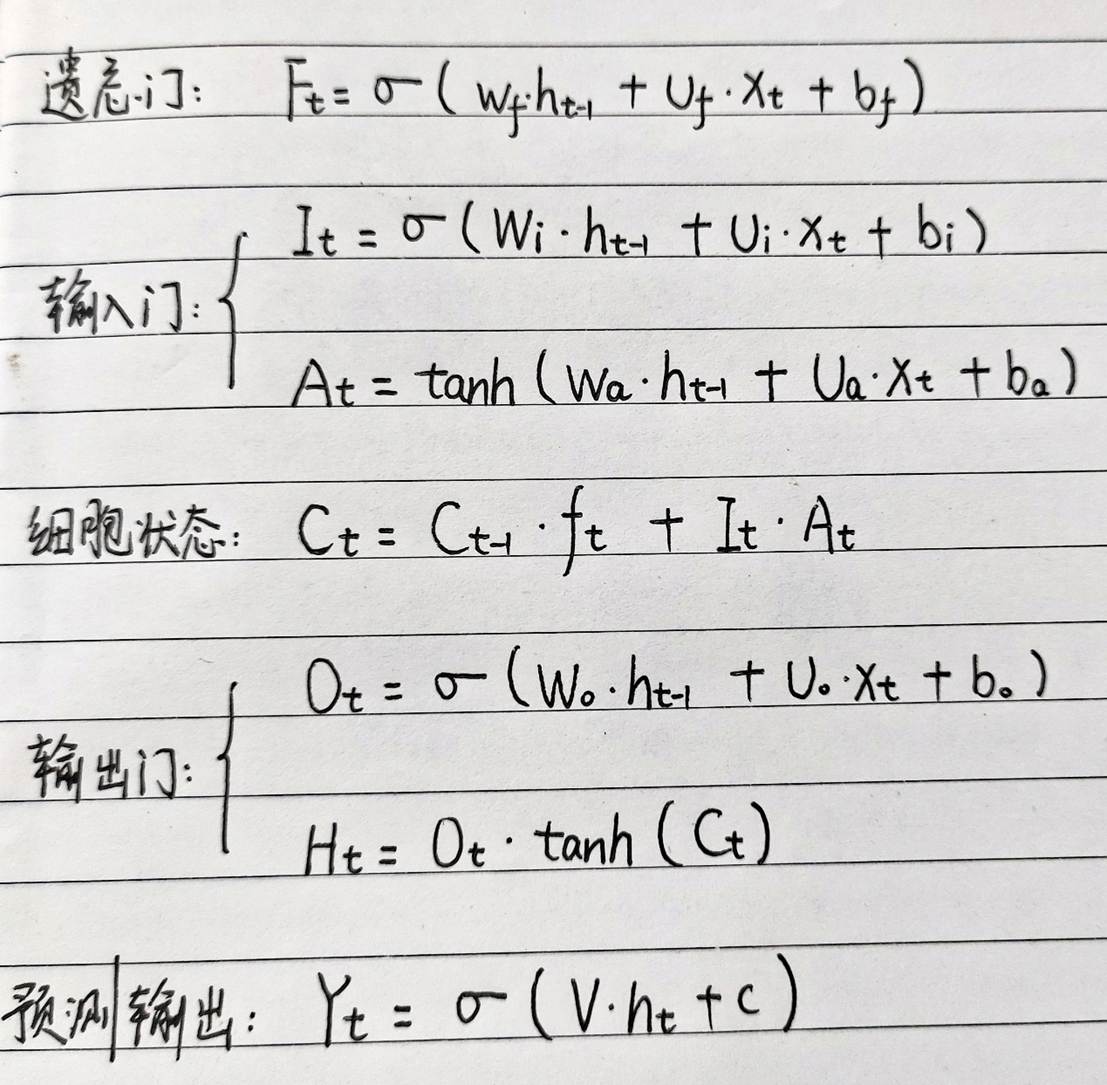 遗忘门: Fₜ = σ ( Wf·hₜ₋₁ + Uf·Xₜ + bf )
Iₜ = σ ( Wi·hₜ₋₁ + Ui·Xₜ + bi )
输入门:
Aₜ = tanh ( Wa·hₜ₋₁ + Ua·Xₜ + ba )
细胞状态: Cₜ = Cₜ₋₁·fₜ + Iₜ·Aₜ
Oₜ = σ ( Wo·hₜ₋₁ + Uo·Xₜ + bo )
输出门:
Hₜ = Oₜ·tanh ( Cₜ )
预测输出: Yₜ = σ ( V·hₜ + c )